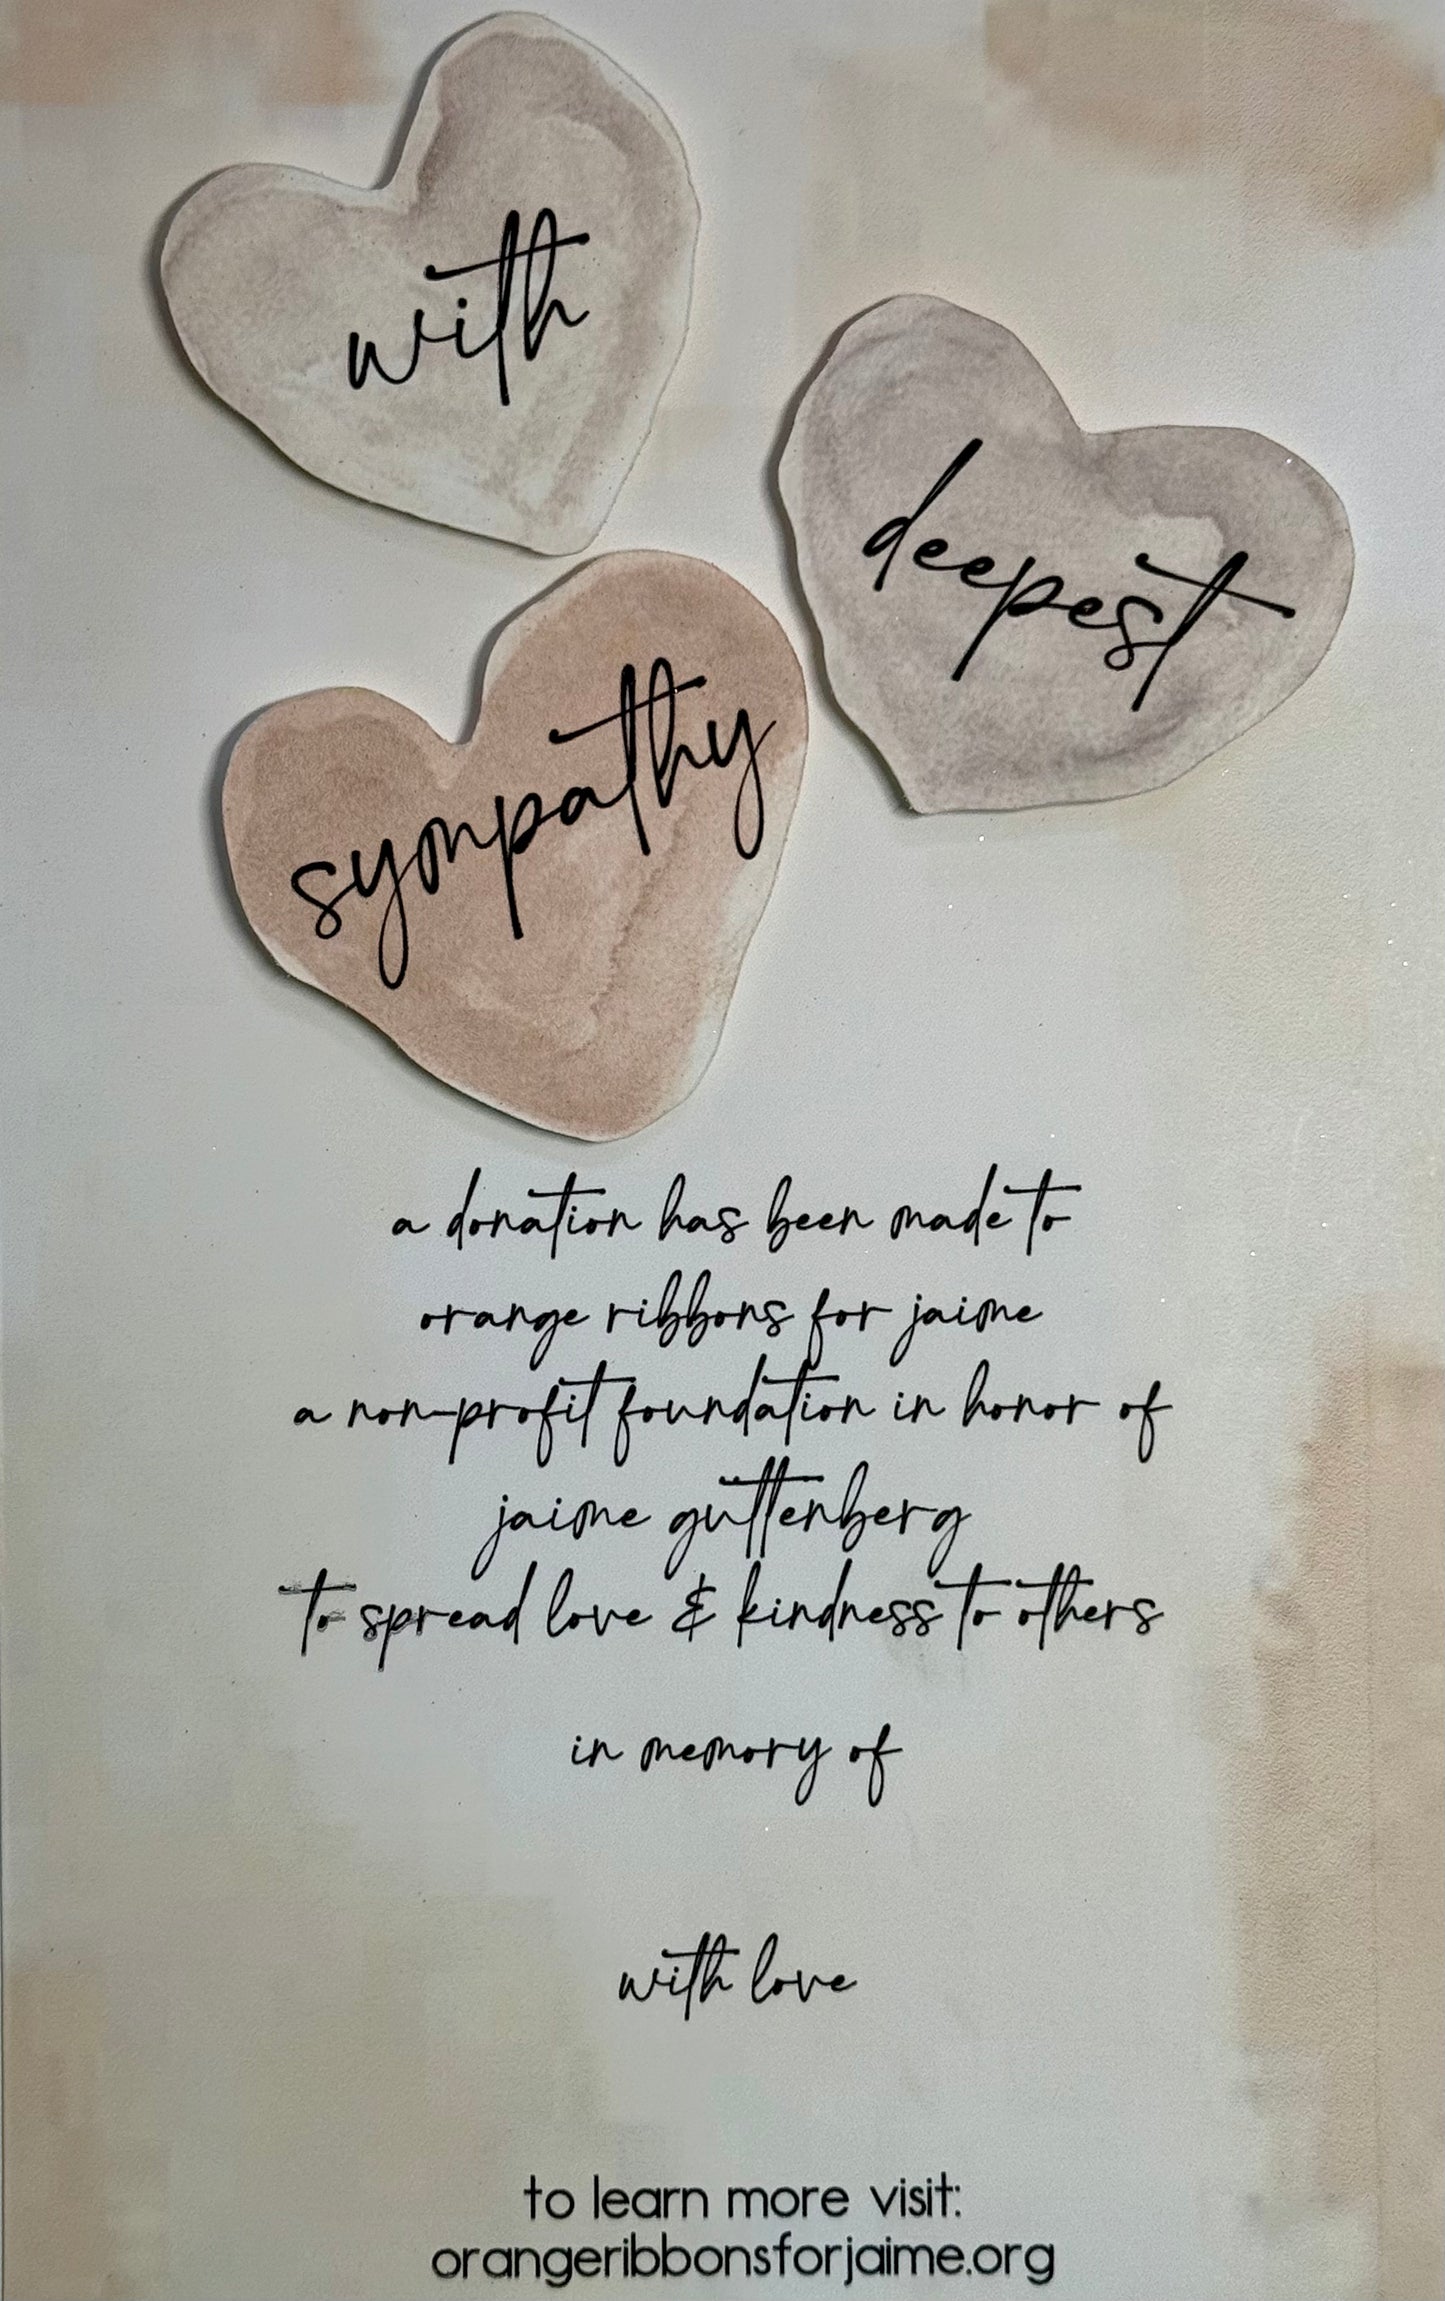 with
deepest
sympathy
a donation has been made to
orange ribbons for jaime
a non-profit foundation in honor of
jaime guttenberg
to spread love & kindness to others
in memory of
with love
to learn more visit:
orangeribbonsforjaime.org